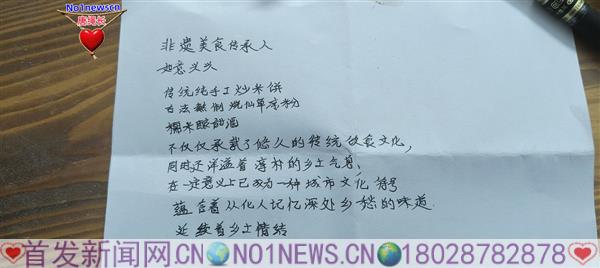 No1newscn
唐缓长
非遗美食传承人
如意义兴
传统纯手工炒米饼
古法熬制凉仙草底粉
糯米酿甜酒
不仅仅承载了悠久的传统饮食文化，
同时还洋溢着淳朴的乡土气息，
在一定意义上已成为一种城市文化符号
蕴含着从化人记忆深处乡愁的味道
延续着乡土情结
首发新闻网.CN NO1NEWS.CN 18028782878